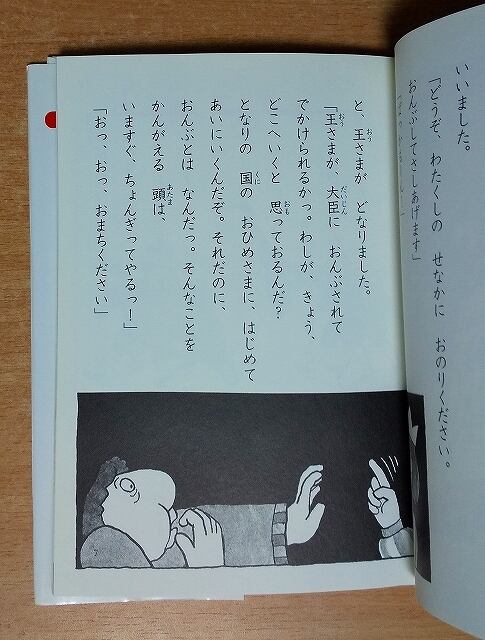 いいました。
「どうぞ、わたくしの　せなかに　おのりください。
おんぶしてさしあげます」
と、王さまが　どなりました。
「王さまが、大臣に　おんぶされて
でかけられるかっ。わしが、きょう、
どこへいくと　思っておるんだ？
となりの　国の　おひめさまに、はじめて
あいにいくんだぞ。それだのに、
おんぶとは　なんだっ。そんなことを
かんがえる　頭は、
いますぐ、ちょんぎってやるっ！」
「おっ、おっ、おまちください」
7